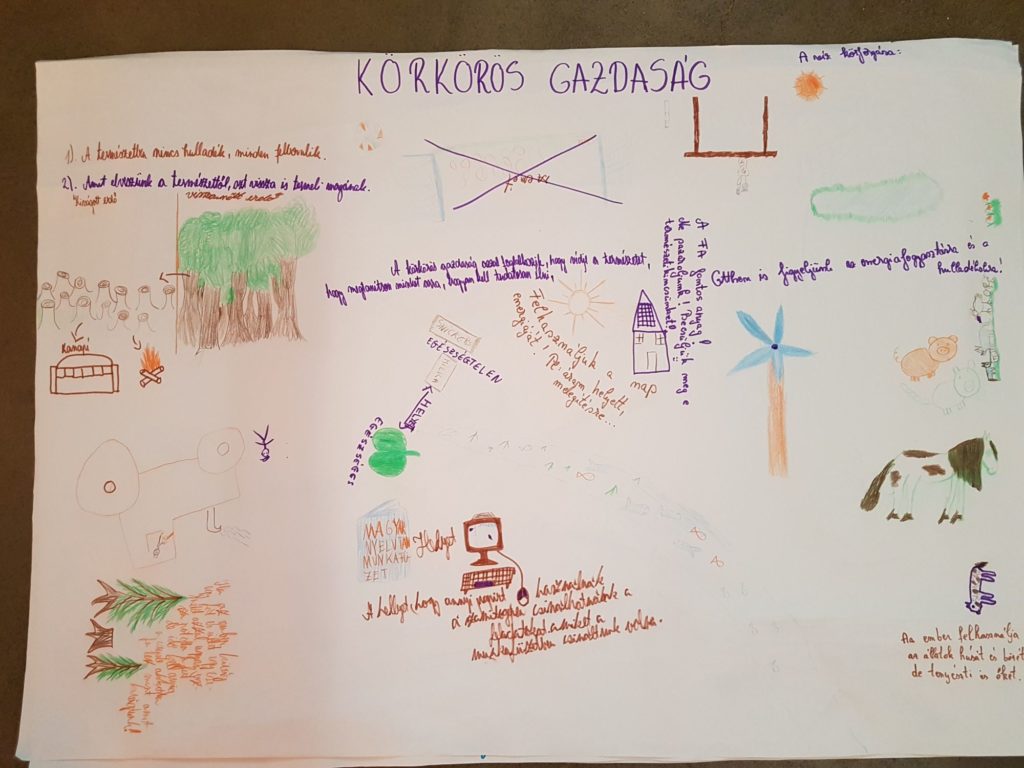 KÖRKÖRÖS GAZDASÁG
A víz körforgása:
1). A természetben nincs hulladék, minden felbomlik.
2). Amit elveszünk a természettől, azt vissza is termel magának.
Kivágott erdő
visszanőtt erdő
Kanapé
A körkörös gazdaság azzal foglalkozik, hogy védje a természetet,
hogy megtanítson minket arra, hogyan kell tudatosan élni,
A FA fontos anyag!
Ne pazaroljunk! Becsüljük meg a
természeti kincsünket!
Otthon is figyeljünk az energiafogyasztásra és a
hulladékokra!
Felhasználjuk a nap
energiáját! Pl: áram helyett,
melegítésre...
EGÉSZSÉGTELEN
HELYETT
EGÉSZSÉGES
MAGYAR
NYELVTAN
MUNKAFÜ-
ZET
Helyett
A helyett, hogy annyi papírt használnánk
a számítógépen csinálhatnánk a
feladatokat amiket a
munkafüzetben csináltunk volna.
Az ember felhasználja
az állatok húsát és bőrét
de tenyészti is őket.